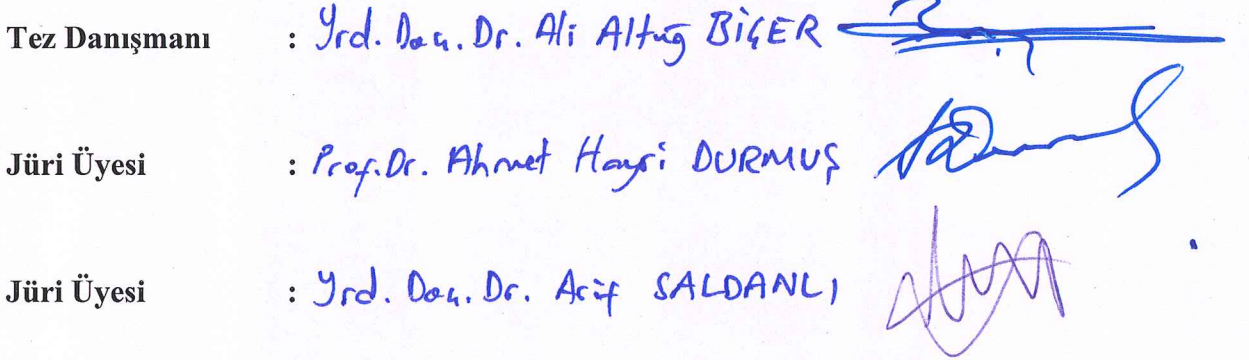 Tez Danışmanı : Yrd. Doç. Dr. Ali Altuğ BİÇER
Jüri Üyesi : Prof. Dr. Ahmet Hayri DURMUŞ
Jüri Üyesi : Yrd. Doç. Dr. Arif SALDANLI